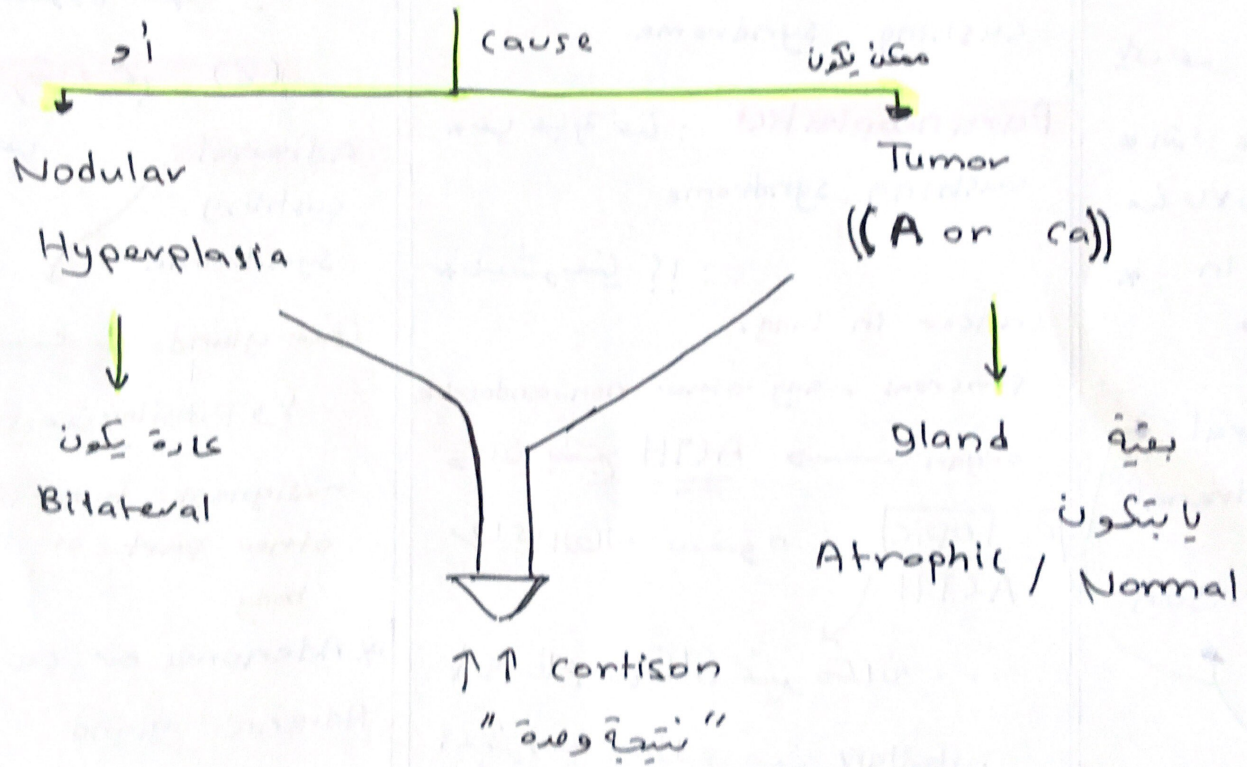 cause
أو
ممكن يكون
Nodular
Hyperplasia
Tumor
((A or ca))
عادة يكون
Bilateral
gland بقية
يا بتكون
Atrophic / Normal
↑↑ cortison
"نتيجة وحدة"